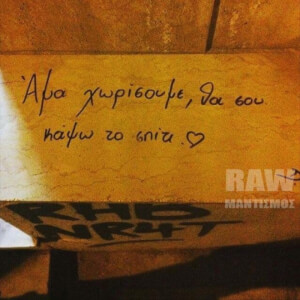 Άμα χωρίσουμε, θα σου
κάψω το σπίτι.♡
RAW
ΜΑΝΤΙΣΜΟΣ
RHD
NR4T